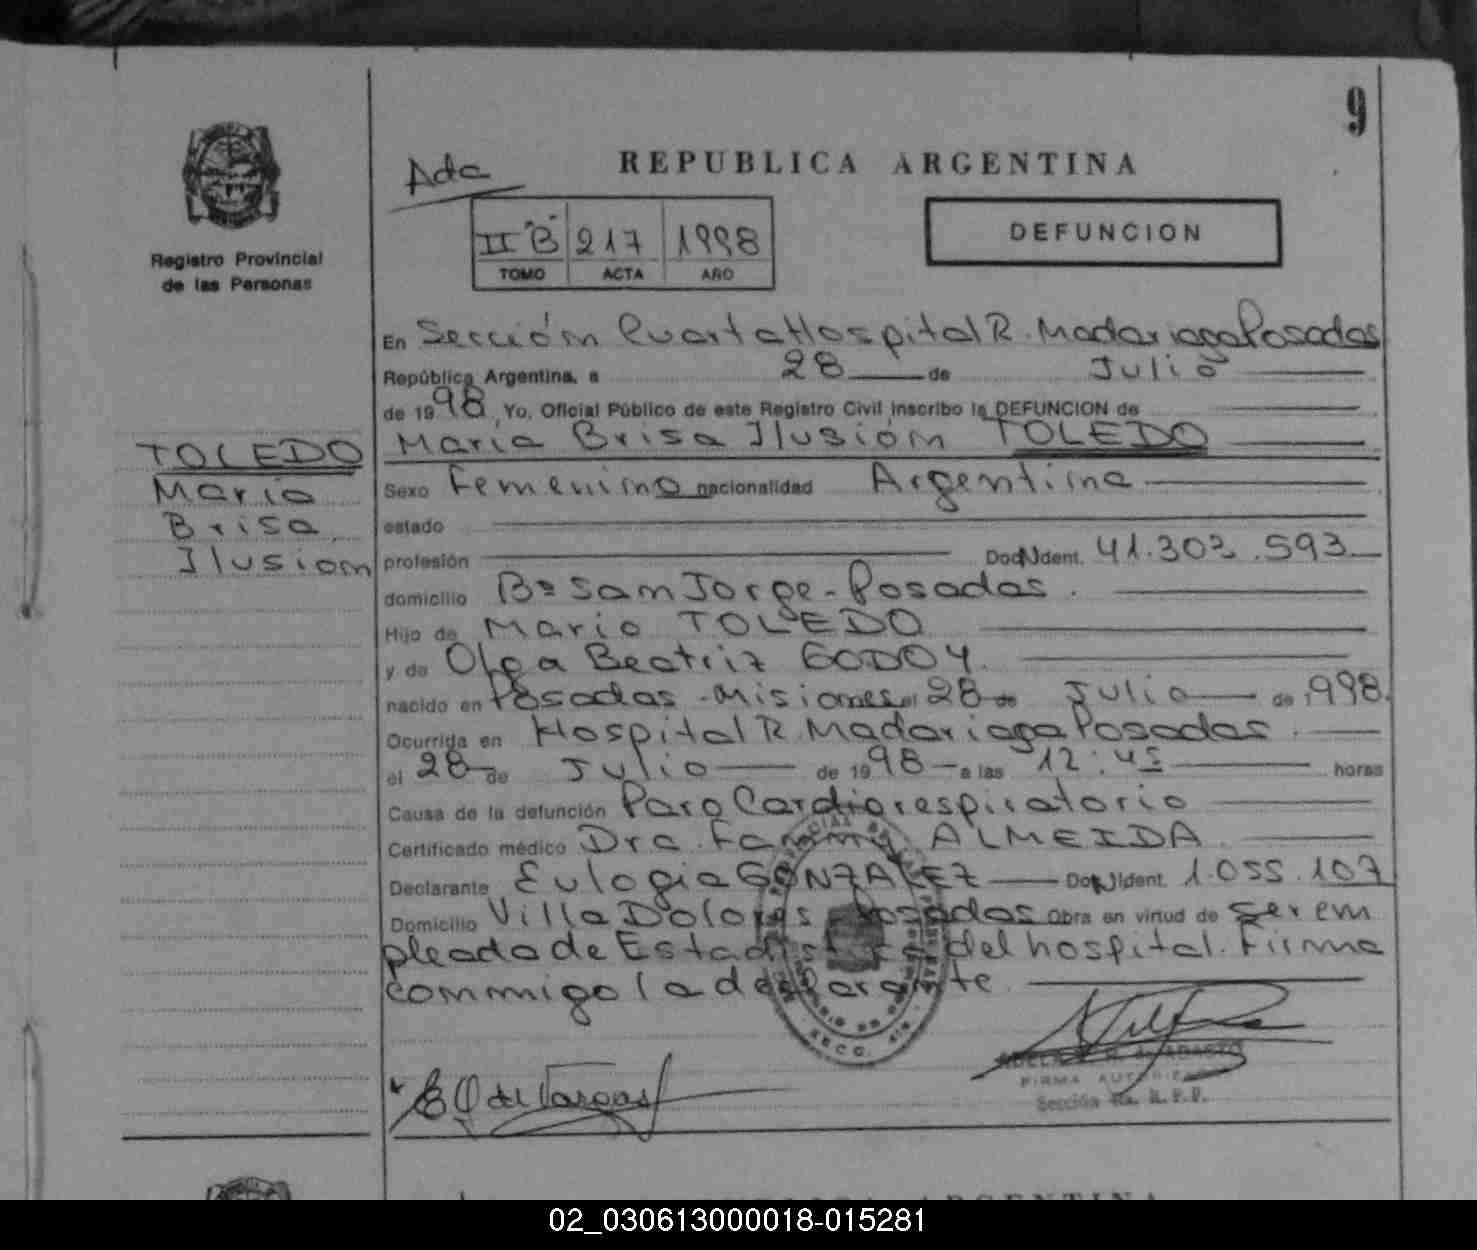 9
Acta
REPUBLICA ARGENTINA
II "B" 217 1998
TOMO ACTA AÑO
DEFUNCION
Registro Provincial
de las Personas
En Sección Cuarta Hospital R. Madariaga Posadas
República Argentina, a 28 de Julio
de 1998, Yo, Oficial Público de este Registro Civil inscribo la DEFUNCION de
María Brisa Ilusión TOLEDO
TOLEDO
María
Brisa
Ilusion
Sexo Femenino nacionalidad Argentina
estado
profesión Doc. N Ident. 41.303.593
domicilio Bº San Jorge - Posadas.
Hijo de Mario TOLEDO
y de Olga Beatriz GODOY.
nacido en Posadas - Misiones el 28 de Julio de 1998.
Ocurrida en Hospital R. Madariaga Posadas.
el 28 de Julio de 1998 a las 12:45 horas
Causa de la defunción Paro Cardiorespiratorio
Certificado médico Dra. Fanny ALMEIDA.
Declarante Eulogia GONZALEZ Doc. N Ident. 1.055.107
Domicilio Villa Dolores Posadas Obra en virtud de ser em
pleada de Estadistica del hospital. Firma
conmigo la declarante.
de Vargas
FIRMA AUTORIZADA
Sección 4ta. R. P. P.
SECC. 4ta.
REPUBLICA ARGENTINA
02_030613000018-015281